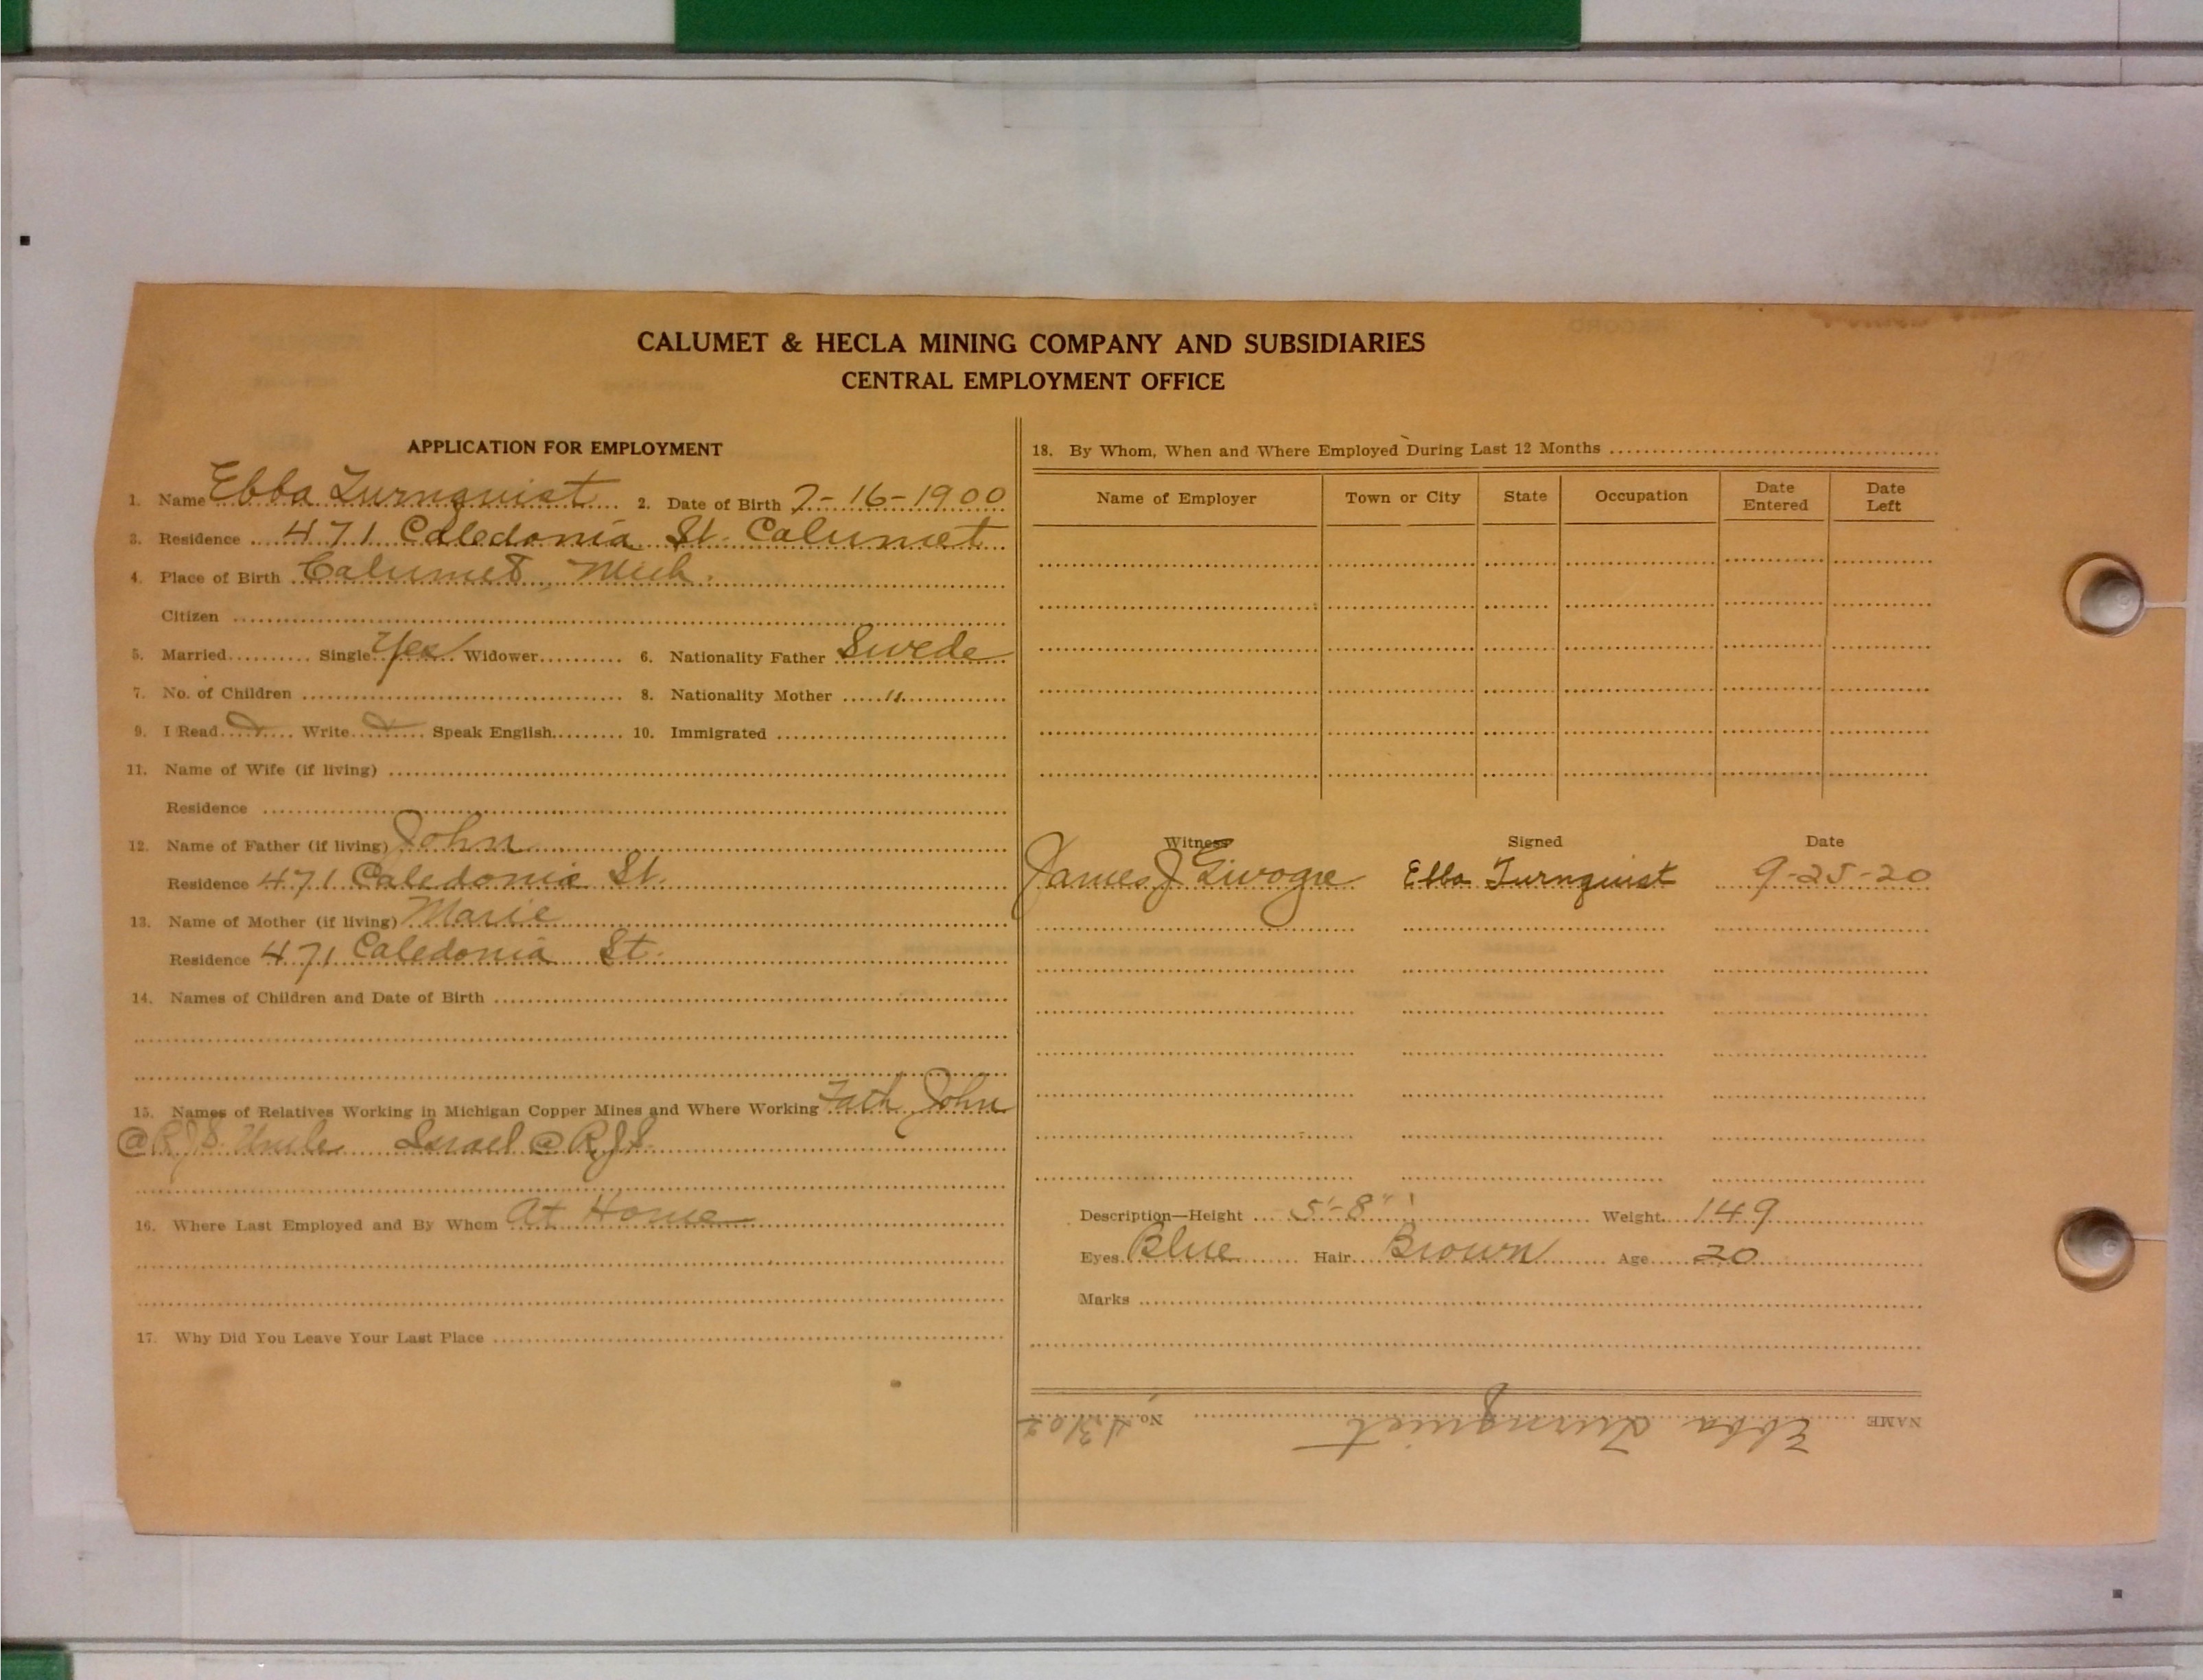 CALUMET & HECLA MINING COMPANY AND SUBSIDIARIES
CENTRAL EMPLOYMENT OFFICE
APPLICATION FOR EMPLOYMENT
1. Name Ebba Turnquist 2. Date of Birth 7-16-1900
3. Residence 471 Caledonia St. Calumet
4. Place of Birth Calumet Mich.
Citizen
5. Married Single Yes Widower 6. Nationality Father Swede
7. No. of Children 8. Nationality Mother "
9. I Read Write Speak English 10. Immigrated
11. Name of Wife (if living)
Residence
12. Name of Father (if living) John
Residence 471 Caledonia St.
13. Name of Mother (if living) Marie
Residence 471 Caledonia St.
14. Names of Children and Date of Birth
15. Names of Relatives Working in Michigan Copper Mines and Where Working Fath John
@ R.J.S. Uncle Israel @ R.J.S.
16. Where Last Employed and By Whom At Home
17. Why Did You Leave Your Last Place
18. By Whom, When and Where Employed During Last 12 Months
Name of Employer Town or City State Occupation Date Entered Date Left
Witness Signed Date
James J Ebba Turnquist 9-25-20
Description—Height 5'-8" Weight 149
Eyes Blue Hair Brown Age 20
Marks
NAME Ebba Turnquist No.